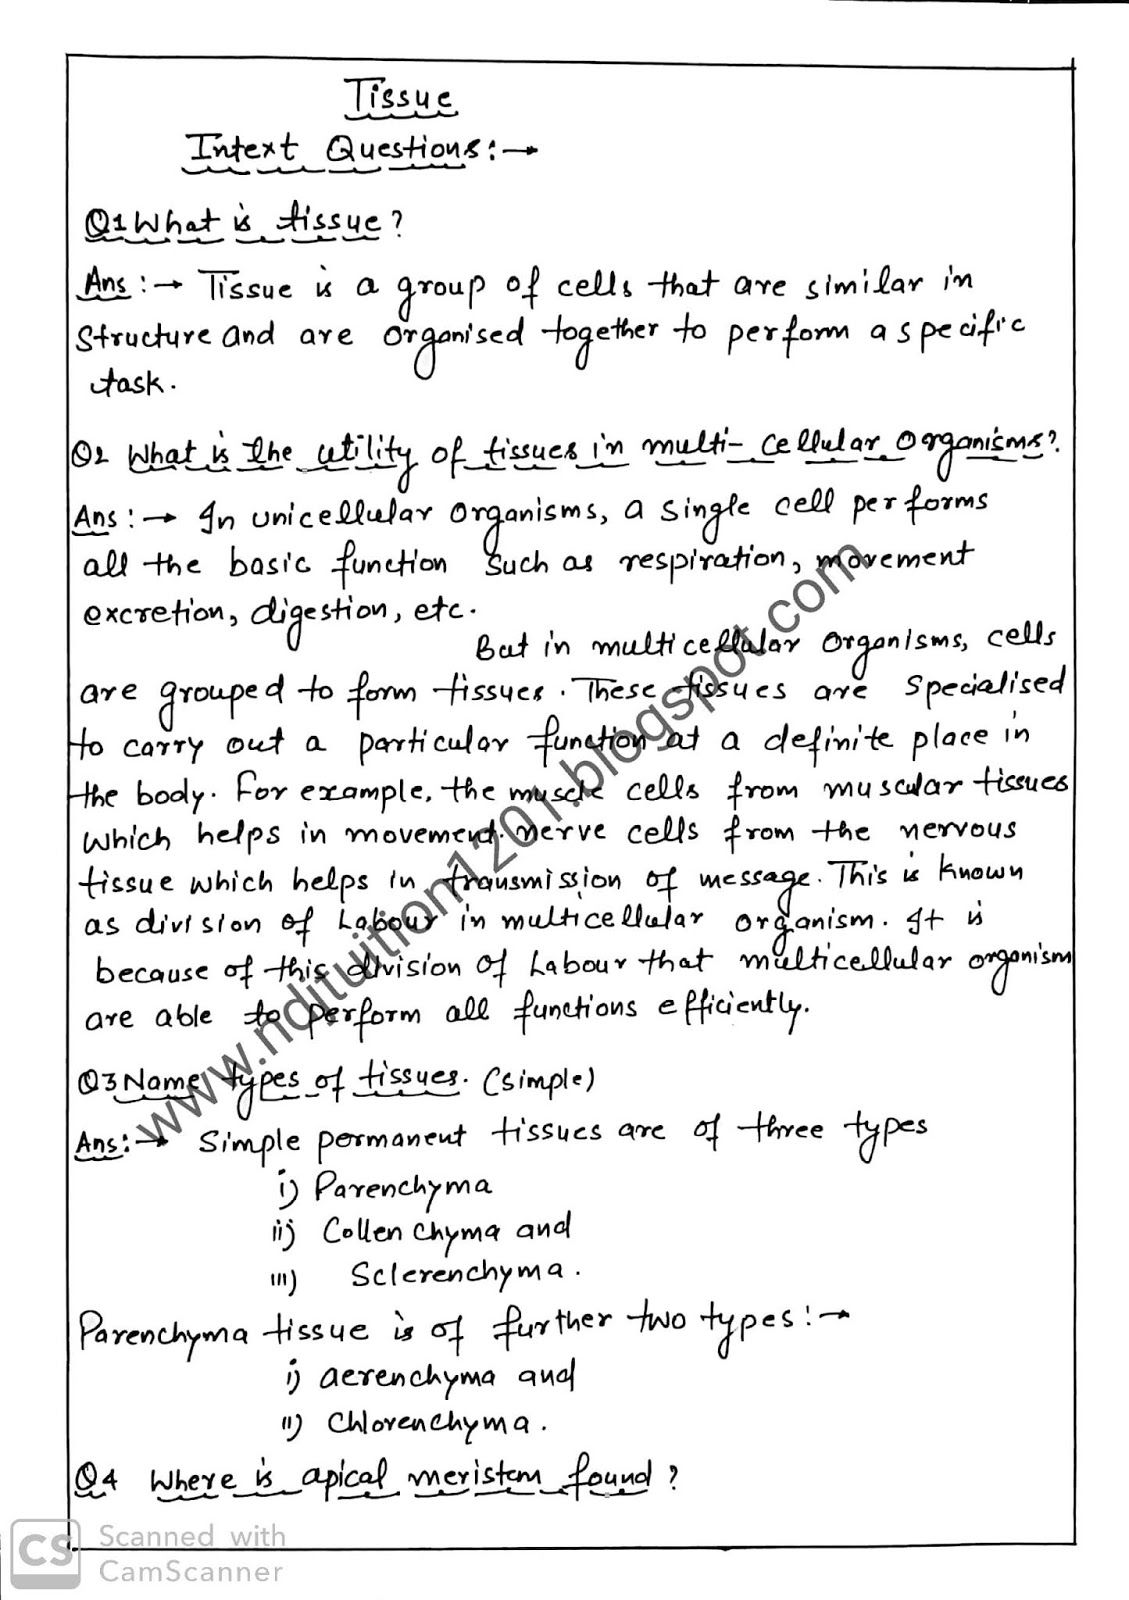 Tissue
Intext Questions:→
Q1 What is tissue?
Ans:→ Tissue is a group of cells that are similar in
structure and are organised together to perform a specific
task.
Q2 What is the utility of tissues in multi-cellular organisms?
Ans:→ In unicellular organisms, a single cell performs
all the basic function such as respiration, movement
excretion, digestion, etc.
But in multicellular organisms, cells
are grouped to form tissues. These tissues are specialised
to carry out a particular function at a definite place in
the body. For example, the muscle cells from muscular tissues
which helps in movement. nerve cells from the nervous
tissue which helps in transmission of message. This is known
as division of Labour in multicellular organism. It is
because of this division of Labour that multicellular organism
are able to perform all functions efficiently.
Q3 Name types of tissues. (simple)
Ans:→ Simple permanent tissues are of three types
i) Parenchyma
ii) Collenchyma and
iii) Sclerenchyma.
Parenchyma tissue is of further two types:→
i) aerenchyma and
ii) Chlorenchyma.
Q4 Where is apical meristem found?
www.ndjtuition1201.blogspot.com
CS Scanned with
CamScanner